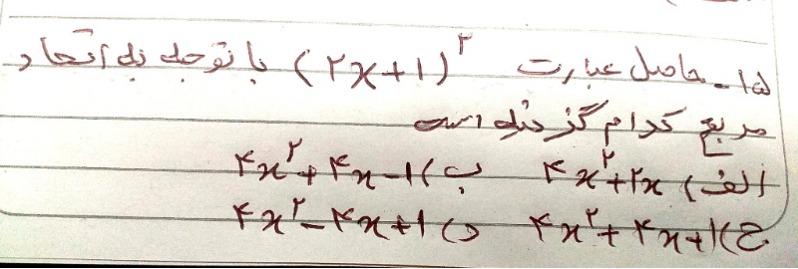 ۱۵- حاصل عبارت (۲x+۱)^۲ با توجه به اتحاد
مربع کدام گزینه است
الف) ۴x^۲+۲x ب) ۴x^۲+۴x-۱
ج) ۴x^۲+۴x+۱ د) ۴x^۲-۴x+۱